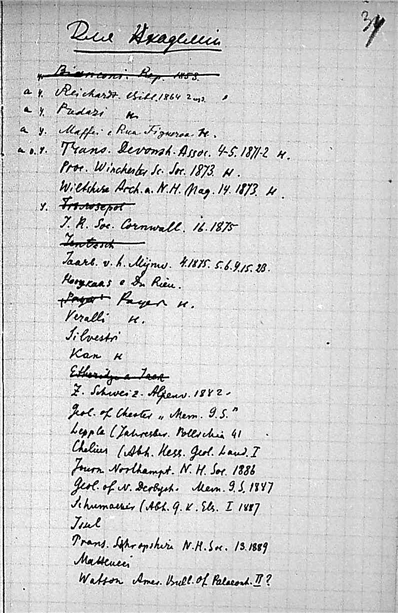 34
Для Академіи
Bianconi. Rep. 1853.
a y. Reichardt. Bibl. 1864
a y. Pudazi н
a y. Maffei e Rua Figueroa н.
a o. y. Trans. Devonsh. Assoc. 4-5. 1871-2 н.
Proc. Winchester Sc. Soc. 1873 н.
Wiltshire Arch. a. N.H. Mag. 14. 1873. н
y.
T. R. Soc. Cornwall. 16. 1875
Jentzsch
Jaarb. v. h. Mijnw. 4. 1875. 5. 6. 9. 15. 23.
о Du Rieu.
Payer Payer н.
Veralli н.
Silvestri
Kan н
Z. Schweiz. Alpenv. 1882.
Geol. of Chester „Mem. G.S."
Leppla (Jahresber. Pollichia 41
Chelius (Abh. Hess. Geol. Land. I
Journ Northampt. N.H. Soc. 1886
Geol. of N. Derbysh. Mem. G.S. 1887
Schumacher (Abh. g. K. Els. I 1887
Issel
Trans. Shropshire N.H. Soc. 13. 1889
Matteucci
Watson Amer. Bull. of Palaeont. II?